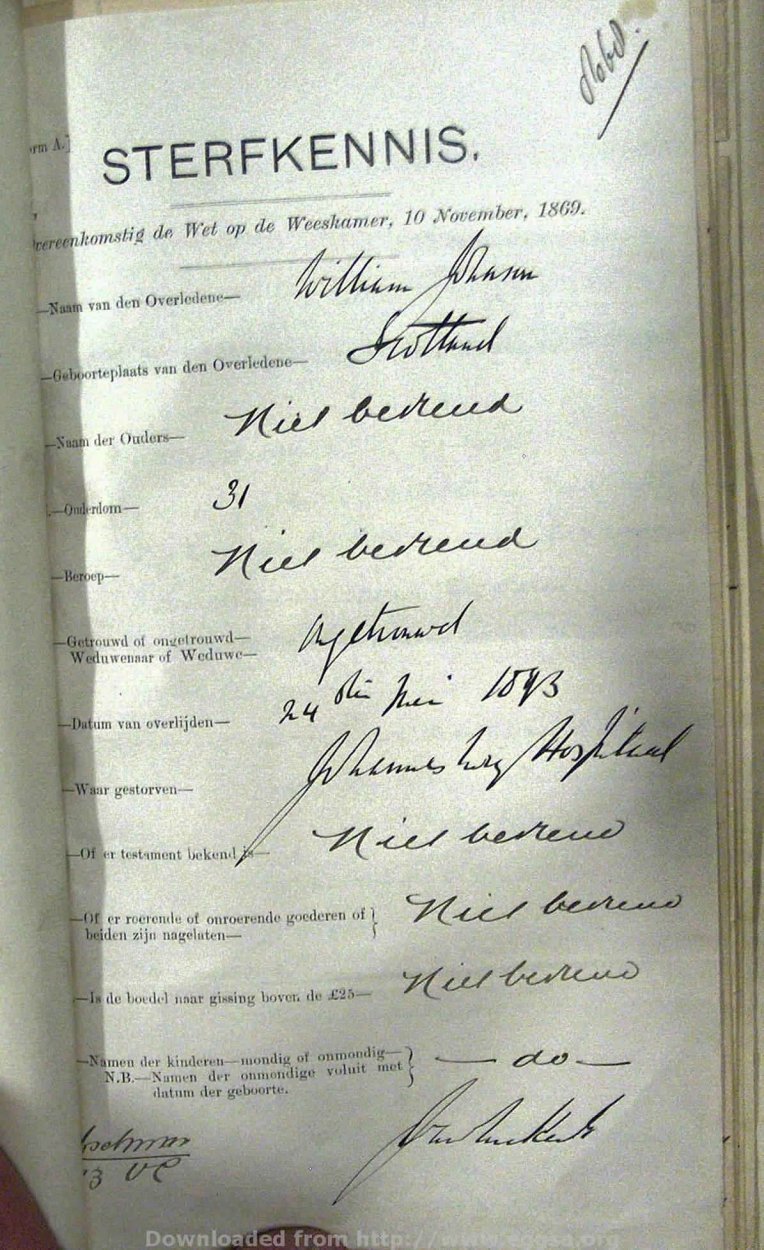 orm A.]
STERFKENNIS.
vereenkomstig de Wet op de Weeskamer, 10 November, 1869.
—Naam van den Overledene— William Johnson
—Geboorteplaats van den Overledene— Scotland
—Naam der Ouders— Niet bekend
—Ouderdom— 31
—Beroep— Niet bekend
—Getrouwd of ongetrouwd— Ongetrouwd
Weduwenaar of Weduwe—
—Datum van overlijden— 24 sten Mei 1893
—Waar gestorven— Johannesburg Hospitaal
—Of er testament bekend is— Niet bekend
—Of er roerende of onroerende goederen of } Niet bekend
beiden zijn nagelaten—
—Is de boedel naar gissing boven de £25— Niet bekend
—Namen der kinderen—mondig of onmondig— } — do —
N.B.—Namen der onmondige voluit met
datum der geboorte.
Downloaded from http://www.eggsa.org